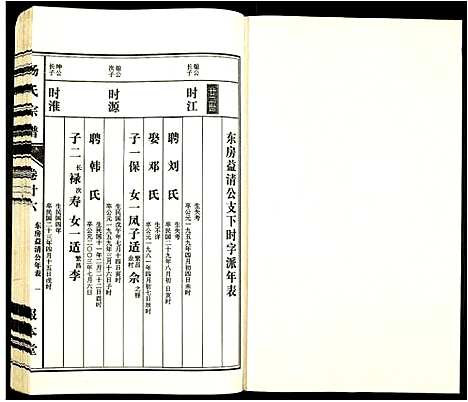 东房益清公支下时字派年表
廿三世
焕公长子
时江
生失考
卒公元一九五九年四月初四日
聘刘氏
生失考
卒民国二十九年八月初二日寅时
娶邓氏
生不详
卒公元一九八一年四月初七日辰时
焕公次子
时源
子一保 女一凤子适 繁昌 佘
生民国戊午年七月十四日寅时
卒公元一九五九年三月十六日子时
聘韩氏
生民国十一年二月二十二日酉时
卒公元二〇〇三年七月六日
坤公长子
时淮
子二 长禄 次寿 女一适 繁昌 李
生民国四年
卒民国二十三年四月十五日戌时
杨氏宗谱
卷廿六
东房益清公年表
一
报本堂